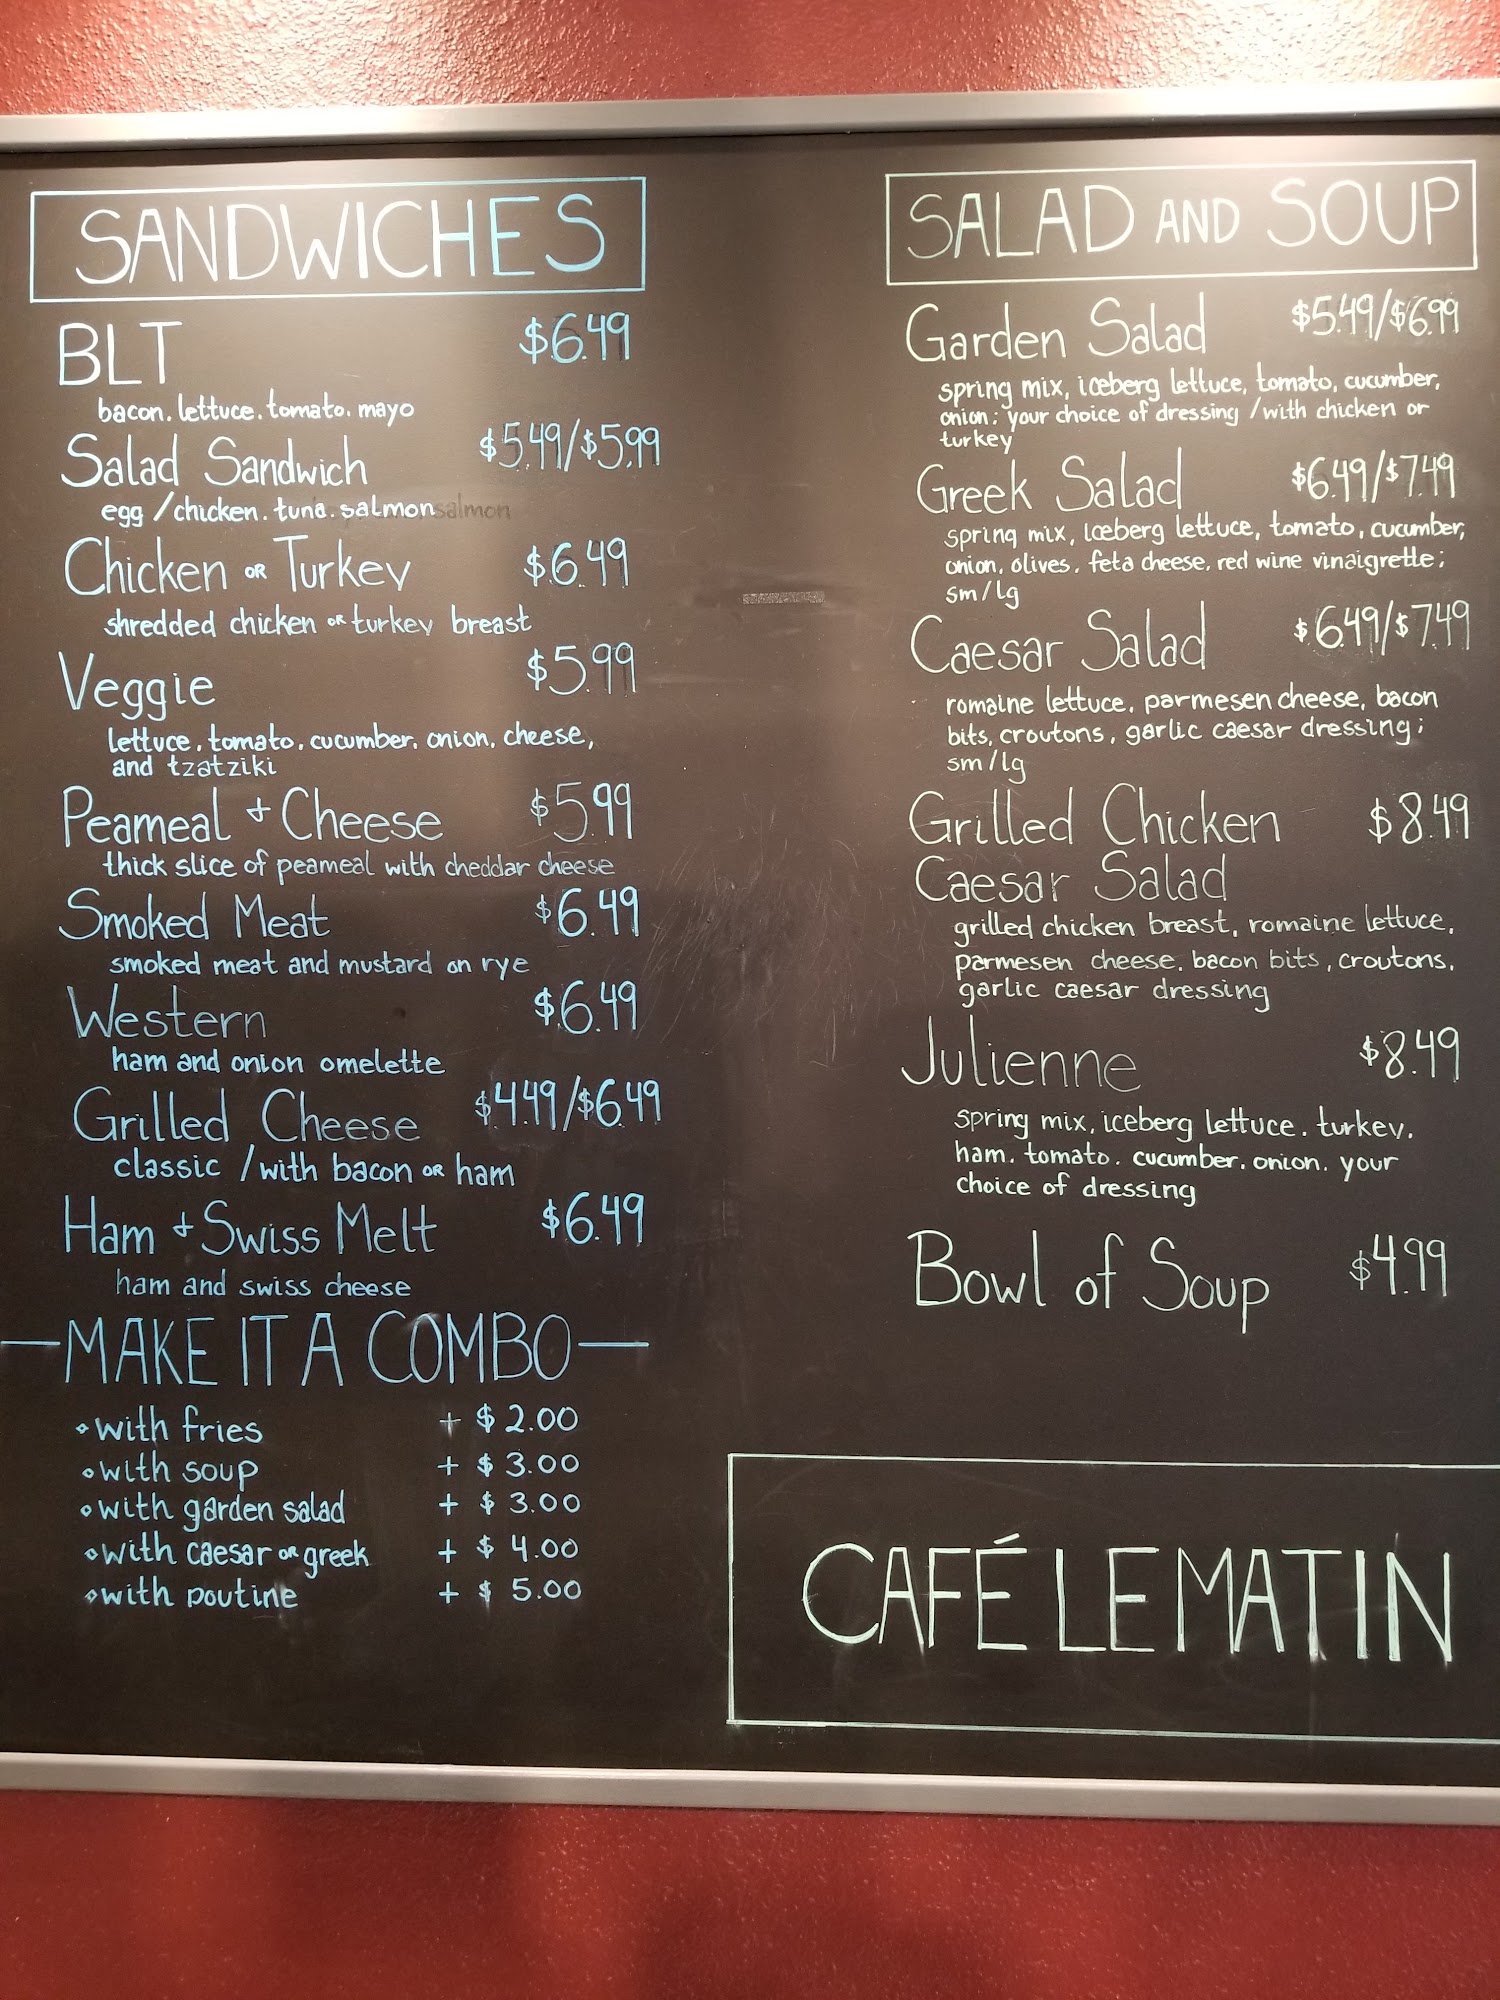 SANDWICHES
BLT $6.49
bacon. lettuce. tomato. mayo
Salad Sandwich $5.49/$5.99
egg /chicken. tuna. salmon salmon
Chicken OR Turkey $6.49
shredded chicken OR turkey breast
Veggie $5.99
lettuce. tomato. cucumber. onion. cheese,
and tzatziki
Peameal + Cheese $5.99
thick slice of peameal with cheddar cheese
Smoked Meat $6.49
smoked meat and mustard on rye
Western $6.49
ham and onion omelette
Grilled Cheese $4.49/$6.49
classic /with bacon OR ham
Ham + Swiss Melt $6.49
ham and swiss cheese
—MAKE IT A COMBO—
with fries + $2.00
with soup + $3.00
with garden salad + $3.00
with caesar OR greek + $4.00
with poutine + $5.00
SALAD AND SOUP
Garden Salad $5.49/$6.99
spring mix, iceberg lettuce, tomato, cucumber,
onion; your choice of dressing /with chicken or
turkey
Greek Salad $6.49/$7.49
spring mix, iceberg lettuce, tomato, cucumber,
onion, olives, feta cheese, red wine vinaigrette;
sm/lg
Caesar Salad $6.49/$7.49
romaine lettuce, parmesen cheese, bacon
bits, croutons, garlic caesar dressing;
sm/lg
Grilled Chicken $8.49
Caesar Salad
grilled chicken breast, romaine lettuce,
parmesen cheese, bacon bits, croutons,
garlic caesar dressing
Julienne $8.49
spring mix, iceberg lettuce. turkey.
ham. tomato. cucumber. onion. your
choice of dressing
Bowl of Soup $4.99
CAFÉ LE MATIN